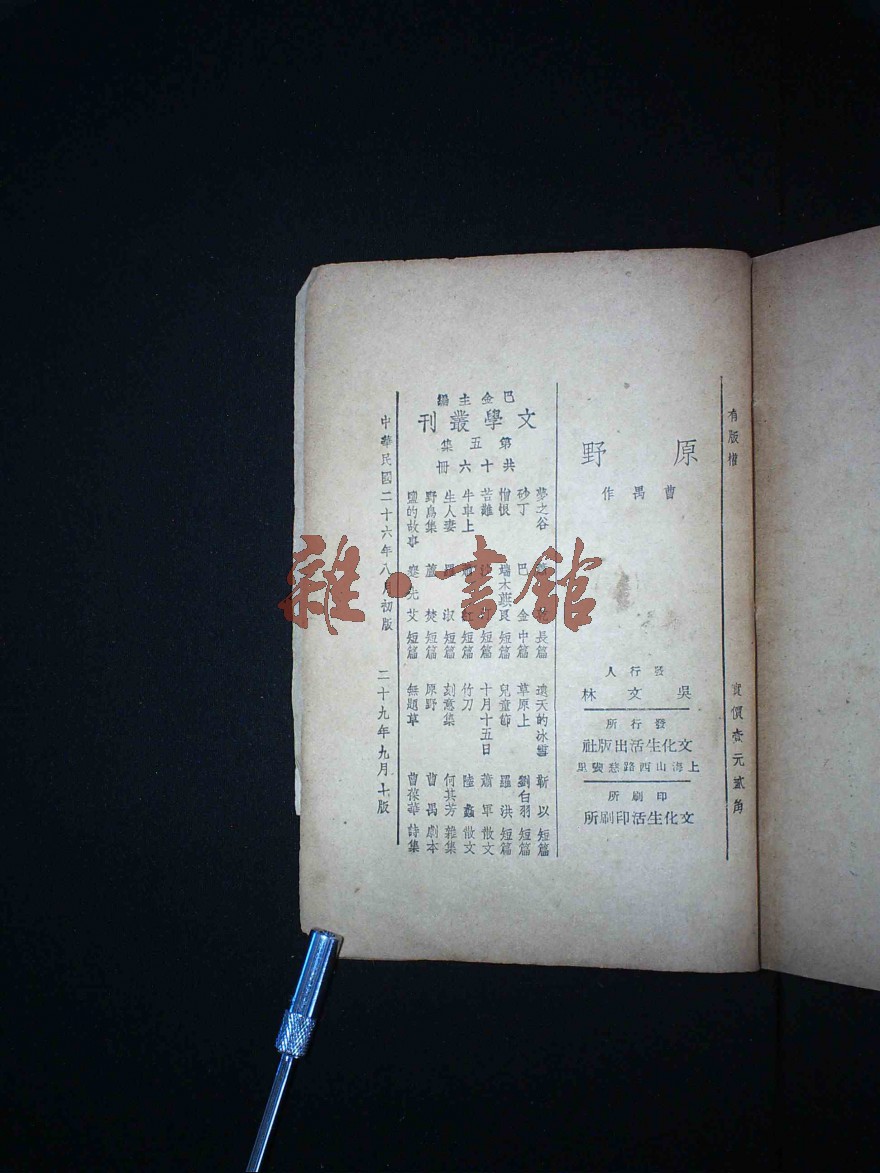 有版權
實價壹元貳角
原野
曹禺作
發行人
吳文林
發行所
文化生活出版社
上海山西路慈豐里
印刷所
文化生活印刷所
巴金主編
文學叢刊
第五集
共十六冊
夢之谷 長篇
砂丁 巴金 中篇
憎恨 端木蕻良 短篇
苦難 短篇
牛車上 短篇
生人妻 羅淑 短篇
野鳥集 蘆焚 短篇
鹽的故事 蹇先艾 短篇
遠天的冰雪 靳以 短篇
草原上 劉白羽 短篇
兒童節 羅洪 短篇
十月十五日 蕭軍 散文
竹刀 陸蠡 散文
刻意集 何其芳 雜集
原野 曹禺 劇本
無題草 曹葆華 詩集
中華民國二十六年八月初版
二十九年九月十版
雜·書館